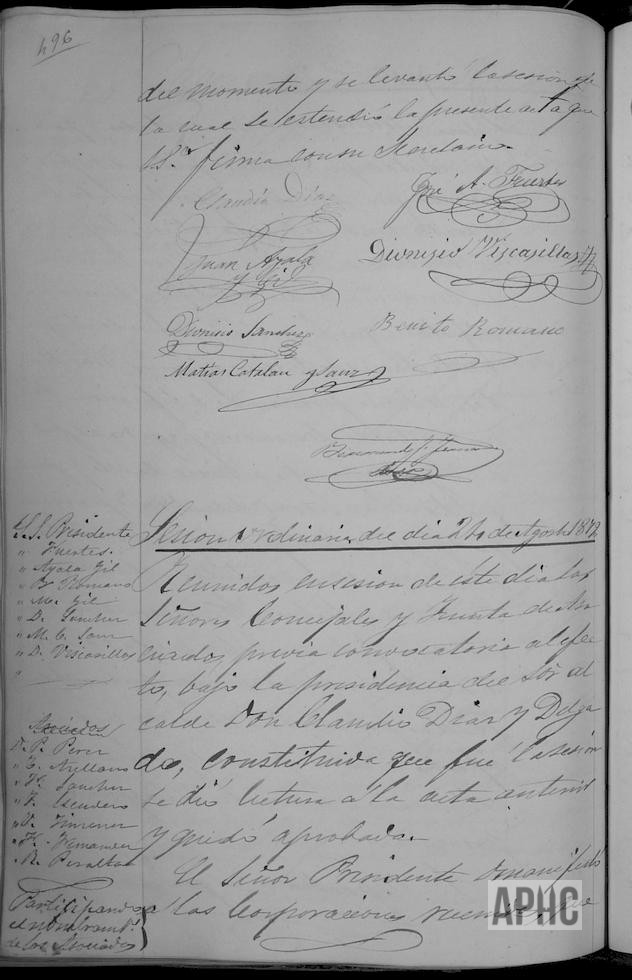 496
del momento y se levantó la sesion de
la cual se estendió la presente acta que
S.ª firma con su Secretario.
Claudio Díaz
José A. Fuertes
Juan Ayala
y Gil
Dionisio Viscasillas
Dionisio Sanchez
Benito Romano
Matías Catalan y Sanz
Sesion ordinaria del dia de Agosto 187
S.S. Presidente
" Fuertes.
" Ayala Gil
" B. Romano
" M. Gil
" D. Sanchez
" M. C. Sanz
" D. Viscasillas
"
Reunidos en sesion de este dia los
Señores Concejales y Junta de As
ociados previa convocatoria al efec
to, bajo la presidencia del Sor. Al
calde Don Claudio Diaz y Delga
do, constituida que fué la sesion
se dió lectura á la acta anterior
y quedó aprobada.
El Señor Presidente manifestó
á las Corporaciones reunidas, que
Asociados
D. P. Perez
" E. Arellano
" Sanchez
" Escudero
" Jimenez
" Fernandez
" R. Peralta
Participando
el nombram.to
de los Asociados
APHC